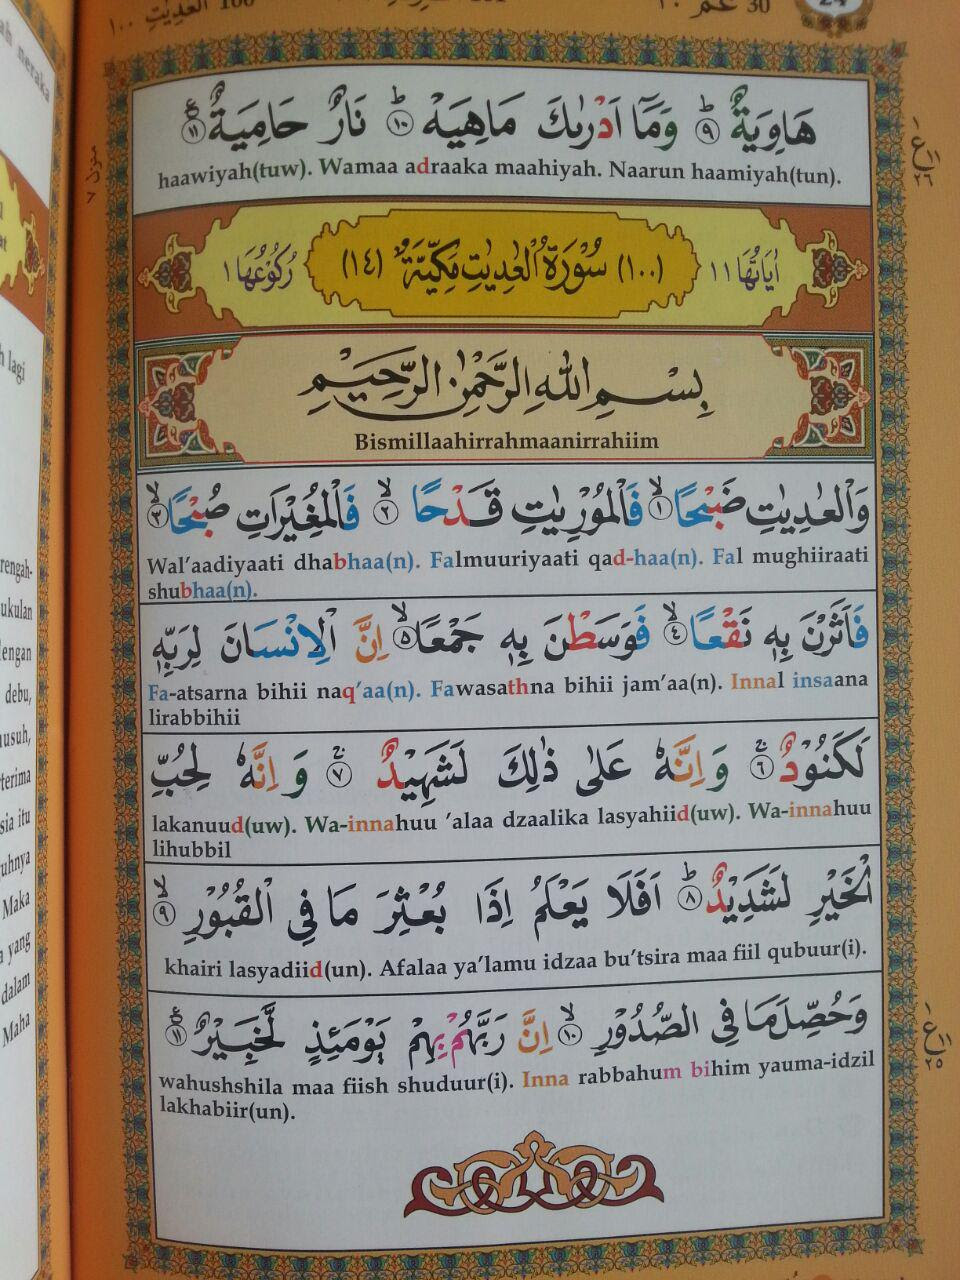 30 عم ٣٠
100 العديت ١٠٠
هَاوِيَةٌ ۝٩ وَمَآ اَدْرٰىكَ مَاهِيَهْ ۝١٠ نَارٌ حَامِيَةٌ ۝١١
haawiyah(tuw). Wamaa adraaka maahiyah. Naarun haamiyah(tun).
اٰيَاتُهَا ١١ (١٠٠) سُوْرَةُ الْعٰدِيٰتِ مَكِّيَّةٌ (١٤) رُكُوْعُهَا ١
بِسْمِ اللّٰهِ الرَّحْمٰنِ الرَّحِيْمِ
Bismillaahirrahmaanirrahiim
وَالْعٰدِيٰتِ ضَبْحًا ۝١ فَالْمُوْرِيٰتِ قَدْحًا ۝٢ فَالْمُغِيْرَاتِ صُبْحًا ۝٣
Wal'aadiyaati dhabhaa(n). Falmuuriyaati qad-haa(n). Fal mughiiraati
shubhaa(n).
فَاَثَرْنَ بِهٖ نَقْعًا ۝٤ فَوَسَطْنَ بِهٖ جَمْعًا ۝٥ اِنَّ الْاِنْسَانَ لِرَبِّهٖ
Fa-atsarna bihii naq'aa(n). Fawasathna bihii jam'aa(n). Innal insaana
lirabbihii
لَكَنُوْدٌ ۝٦ وَاِنَّهٗ عَلٰى ذٰلِكَ لَشَهِيْدٌ ۝٧ وَاِنَّهٗ لِحُبِّ
lakanuud(uw). Wa-innahuu 'alaa dzaalika lasyahiid(uw). Wa-innahuu
lihubbil
الْخَيْرِ لَشَدِيْدٌ ۝٨ اَفَلَا يَعْلَمُ اِذَا بُعْثِرَ مَا فِى الْقُبُوْرِ ۝٩
khairi lasyadiid(un). Afalaa ya'lamu idzaa bu'tsira maa fiil qubuur(i).
وَحُصِّلَ مَا فِى الصُّدُوْرِ ۝١٠ اِنَّ رَبَّهُمْ بِهِمْ يَوْمَئِذٍ لَّخَبِيْرٌ ۝١١
wahushshila maa fiish shuduur(i). Inna rabbahum bihim yauma-idzil
lakhabiir(un).
neraka
lagi
rengah-
ukulan
debu,
Maka
yang
dalam
Maha